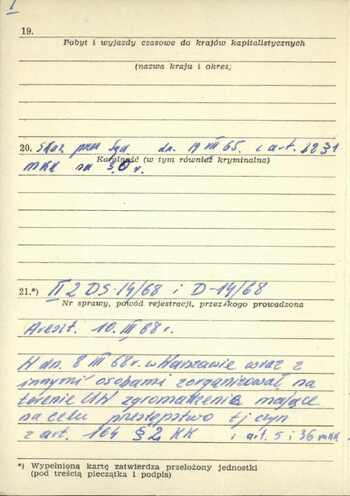 I
19.
Pobyt i wyjazdy czasowe do krajów kapitalistycznych
(nazwa kraju i okres)
20. Skaz. przez Sąd dn. 19 III 65. z art. 1231
Karalność (w tym również kryminalna)
mkk na
21.*) II 2 DS-14/68 i D-14/68
Nr sprawy, powód rejestracji, przez kogo prowadzona
Areszt. 10. III 68 r.
W dn. 8 III 68 r. w Warszawie wraz z
innymi osobami zorganizował na
terenie UW zgromadzenie mające
na celu przestępstwo tj czyn
z art. 164 § 2 KK i art. 5 i 36 mkk
*) Wypełnioną kartę zatwierdza przełożony jednostki
(pod treścią pieczątka i podpis)